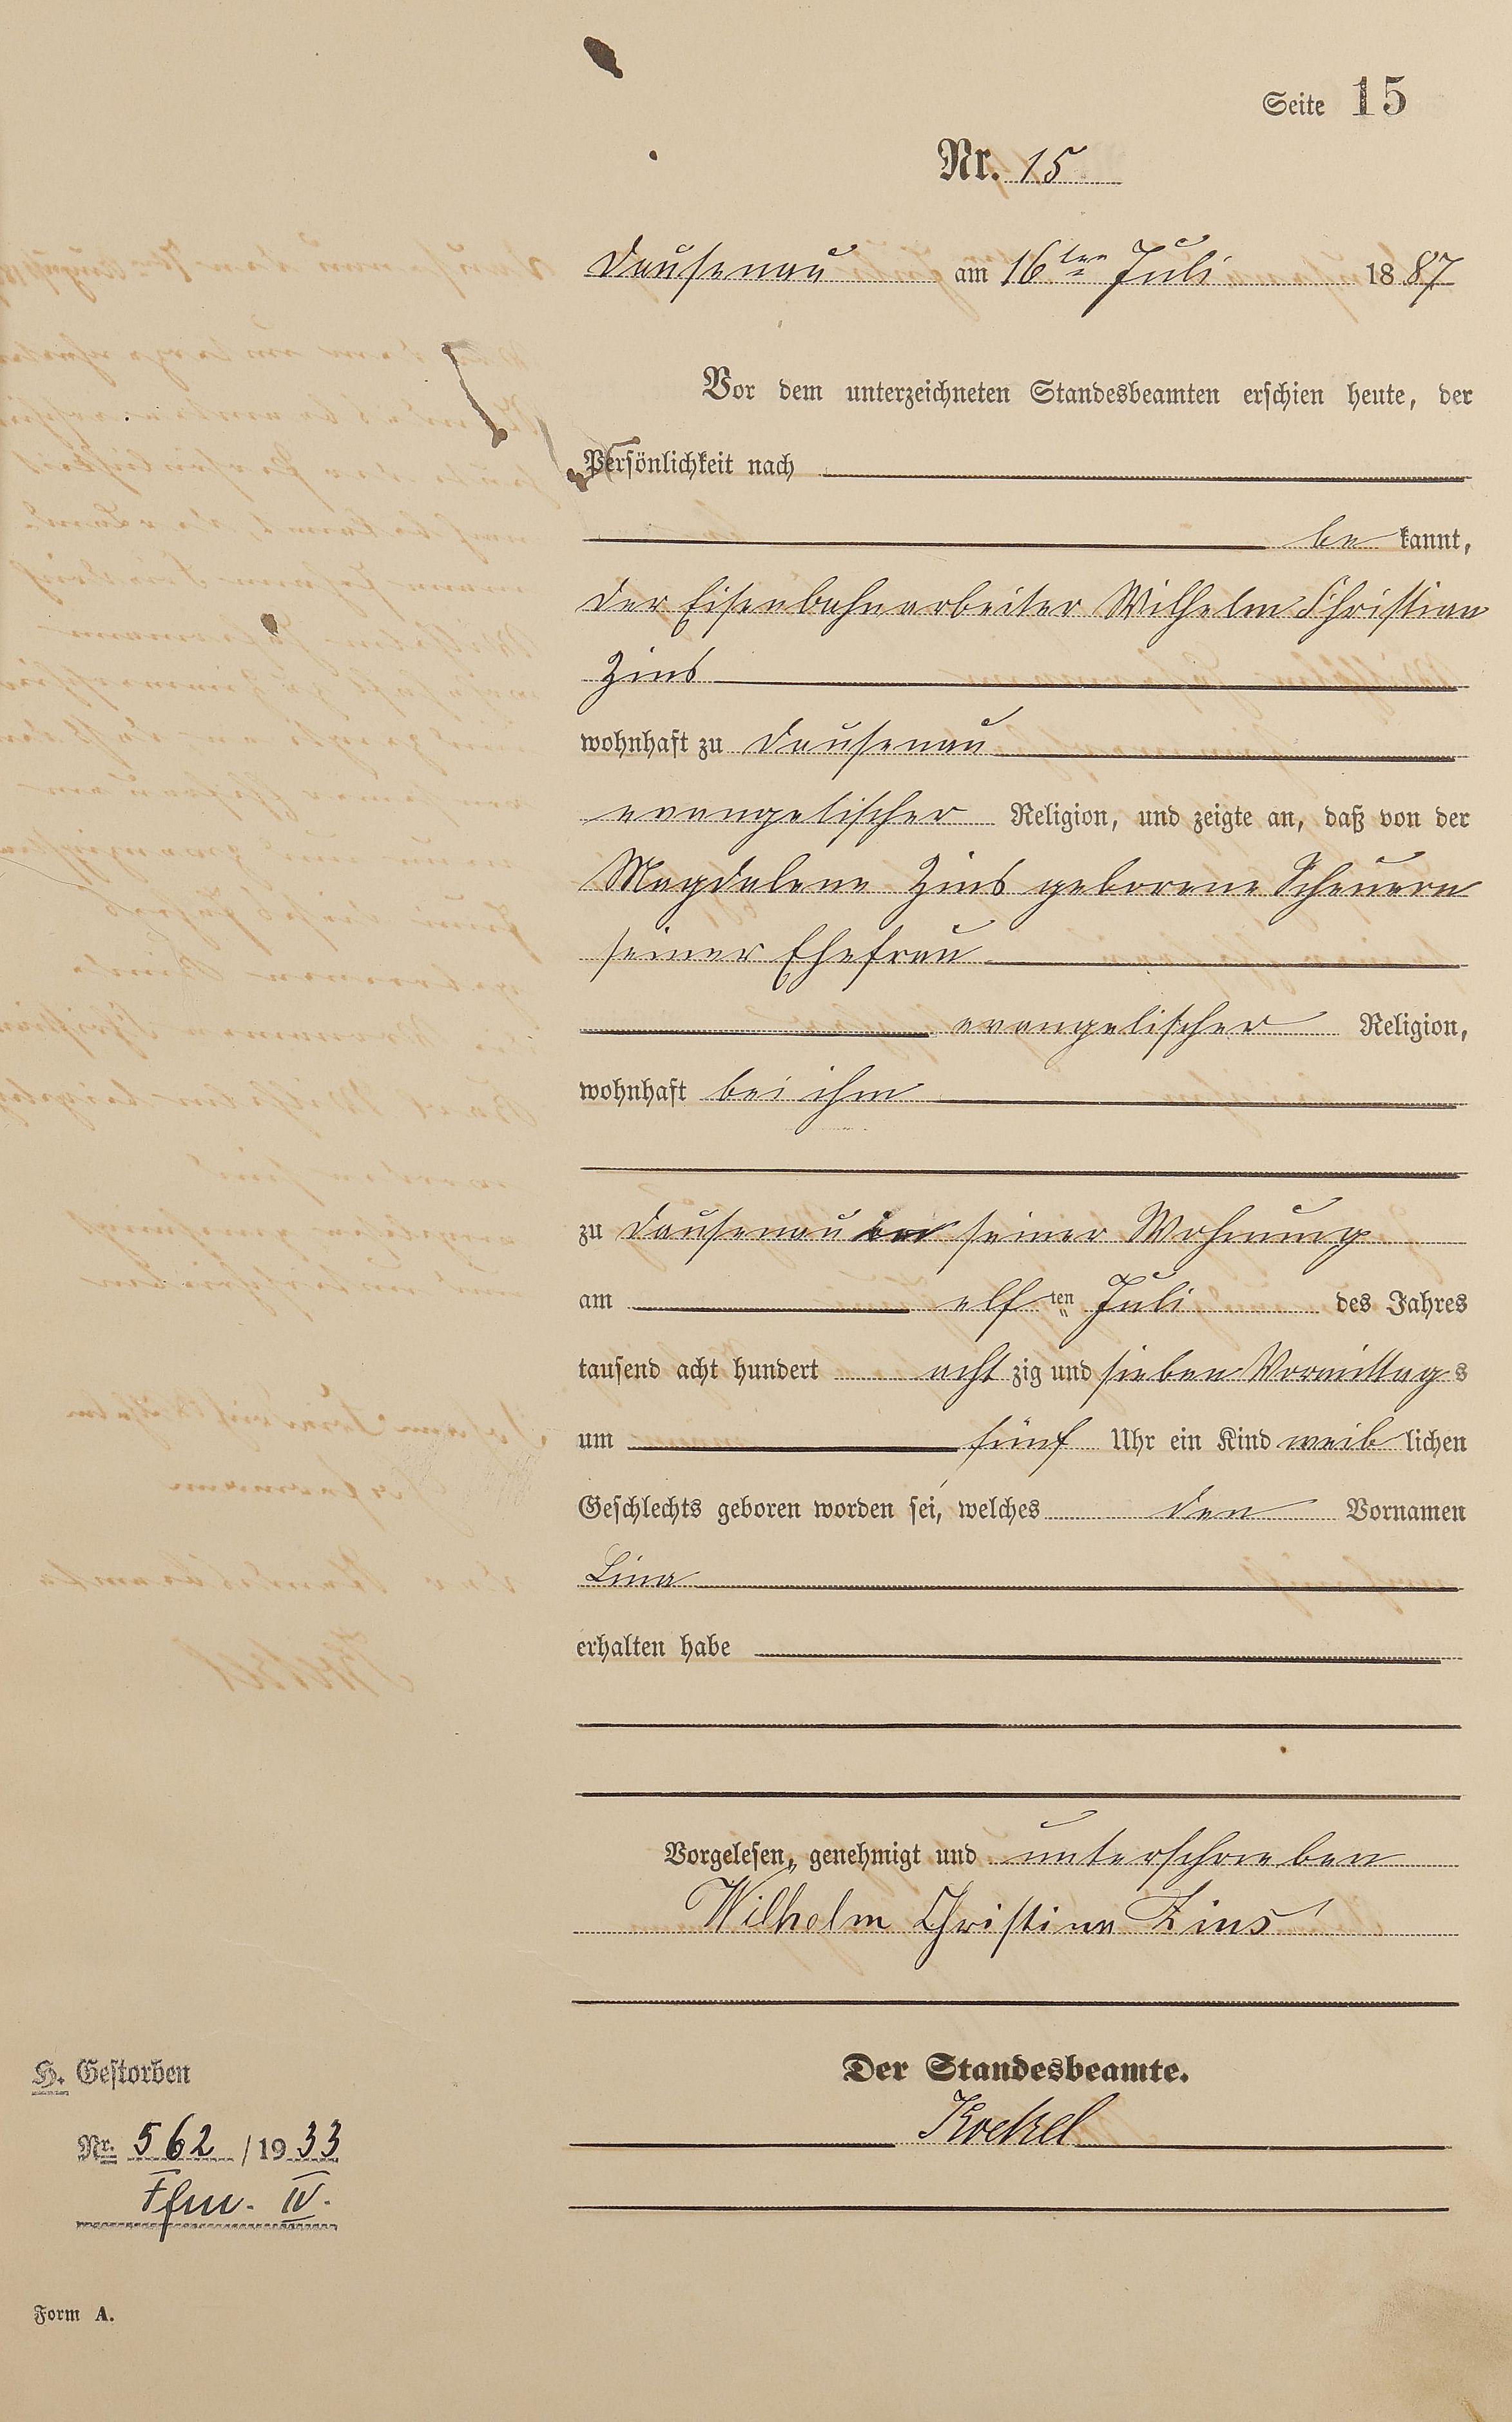 Seite 15
Nr. 15
Dausenau am 16ten Juli 1887
Vor dem unterzeichneten Standesbeamten erschien heute, der
Persönlichkeit nach
bekannt,
der Eisenbahnarbeiter Wilhelm Christian
Zins
wohnhaft zu Dausenau
evangelischer Religion, und zeigte an, daß von der
Magdalene Zins geborene Scheuern
seiner Ehefrau
evangelischer Religion,
wohnhaft bei ihm
zu Dausenau in seiner Wohnung
am elften Juli des Jahres
tausend acht hundert achtzig und sieben Vormittags
um fünf Uhr ein Kind weiblichen
Geschlechts geboren worden sei, welches den Vornamen
Lina
erhalten habe
Vorgelesen, genehmigt und unterschrieben
Wilhelm Christian Zins
Der Standesbeamte.
H. Gestorben
Nr. 562/1933
Ffm. IV.
Form A.